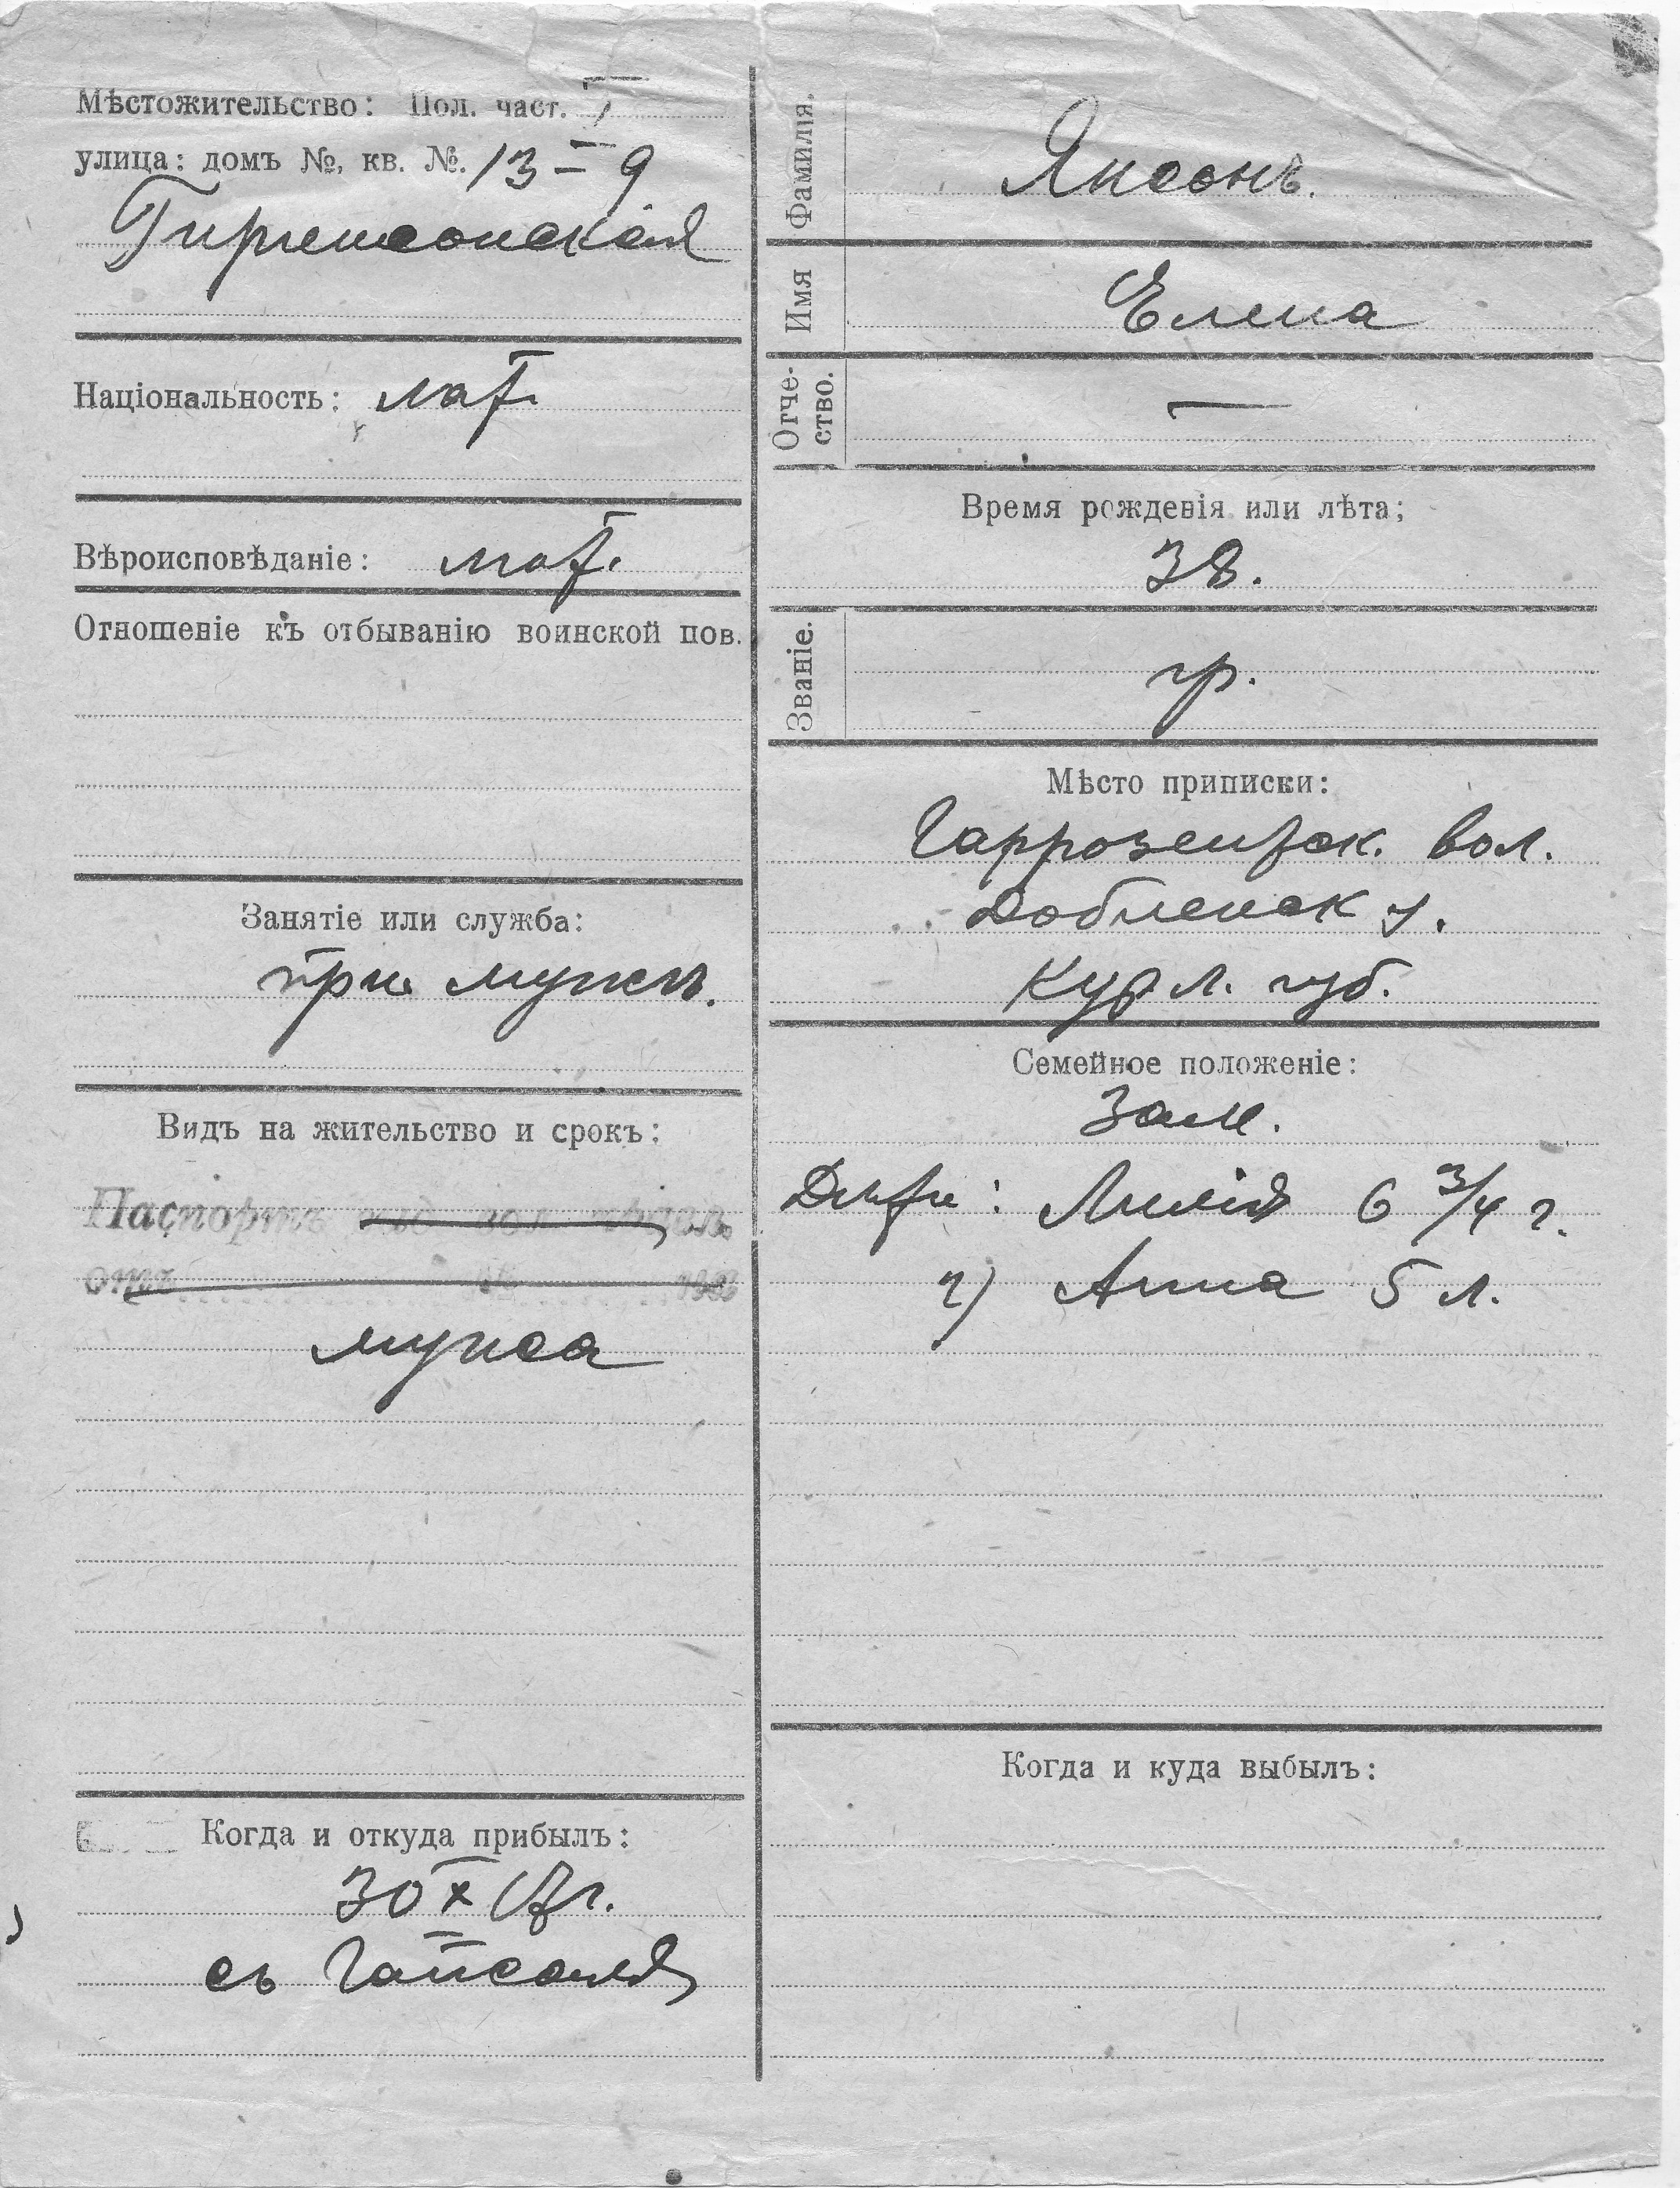 Мѣстожительство: Пол. част. I
улица: домъ №, кв. №. 13 – 9
Гиргенсонская
Національность: лат.
Вѣроисповѣданіе: лют.
Отношеніе къ отбыванію воинской пов.
Занятіе или служба:
при мужѣ.
Видъ на жительство и срокъ:
Паспортъ
отъ
мужа
Когда и откуда прибылъ:
30 X 17 г.
съ Гапсаля
Фамилія.
Янсонъ.
Имя
Елена
Отче-
ство.
—
Время рожденія или лѣта;
38.
Званіе.
гр.
Мѣсто приписки:
Гаррозенск. вол.
Добленск у.
Курл. губ.
Семейное положеніе:
Зам.
Дѣти: Лилія 6 3/4 г.
2) Анна 5 л.
Когда и куда выбылъ: